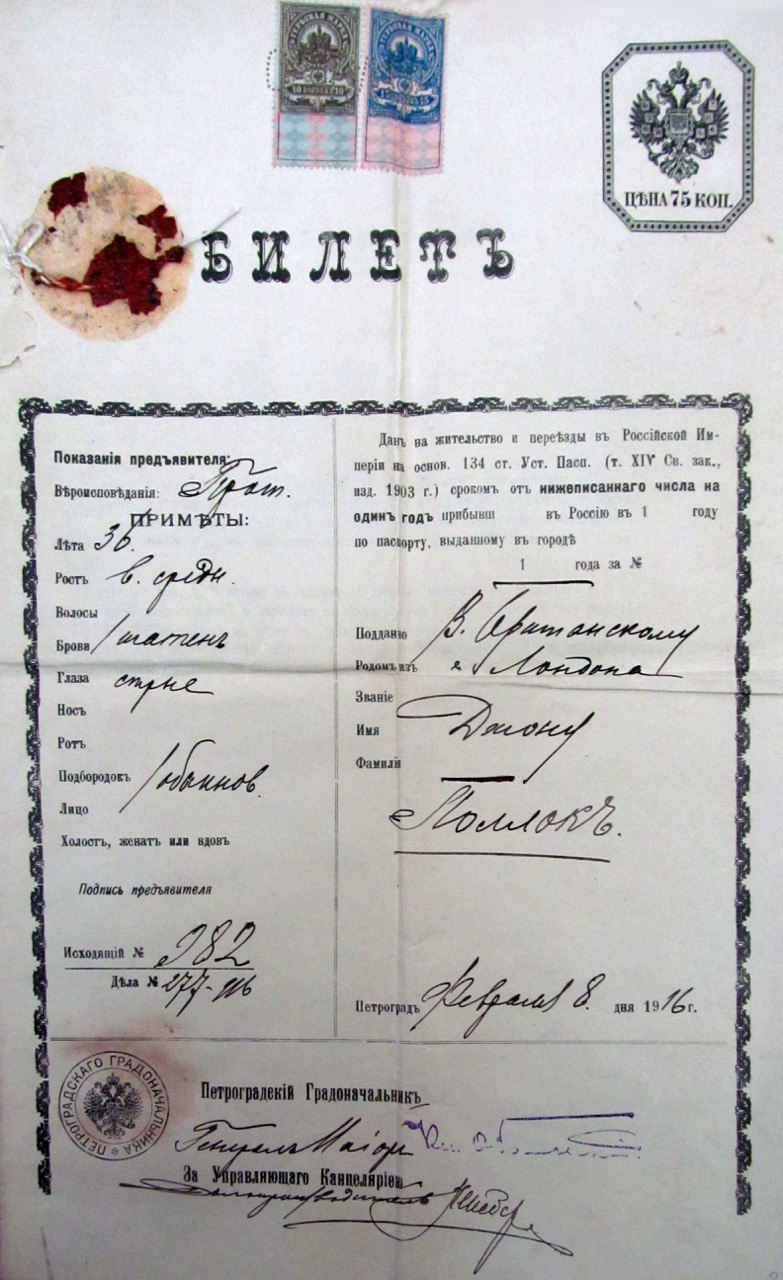 ГЕРБОВАЯ МАРКА
ГЕРБОВАЯ МАРКА
10 КОПѢЕКЪ 10
ЦѢНА 75 КОП.
БИЛЕТЪ
Показанія предъявителя:
Вѣроисповѣданія: Прот.
ПРИМѢТЫ:
Лѣта 36.
Ростъ в. средн.
Волосы
Брови шатенъ
Глаза
Носъ
Ротъ
Подбородокъ обыкнов.
Лицо
Холостъ, женатъ или вдовъ
Подпись предъявителя
Исходящій № 982
Дѣла № 277-916
Данъ на жительство и переѣзды въ Россійской Им-
періи на основ. 134 ст. Уст. Пасп. (т. XIV Св. зак.,
изд. 1903 г.) срокомъ отъ нижеписаннаго числа на
одинъ годъ прибывш въ Россію въ 1 году
по паспорту, выданному въ городѣ
1 года за №
Подданно В. Британскому
Родомъ изъ г. Лондона
Званіе
Имя Джону
Фамилія
Поллокъ.
Петроградъ Февраля 8. дня 1916 г.
ПЕТРОГРАДСКАГО ГРАДОНАЧАЛЬНИКА
Петроградскій Градоначальникъ
Генералъ Маіоръ Кн.
За Управляющаго Канцеляріею
Дѣлопроизводитель